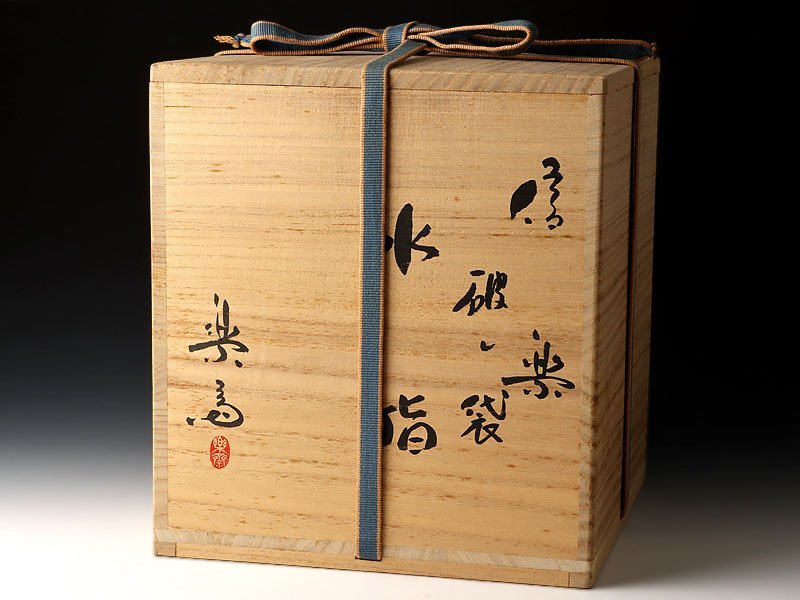 信楽
破レ袋
水指
楽斎
楽斎